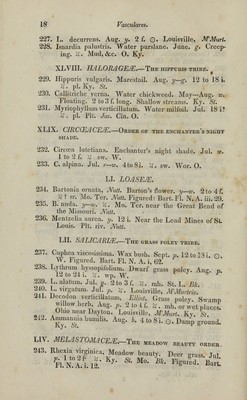 18 Vasculares.
227. L. decurrens. Aug. y. 2 f. ☉. Louisville, M'Murt.
228. Isnardia palustris. Water purslane. June. g. Creep-
ing. ♃. Mud, &c. O. Ky.
XLVIII. HALORAGEÆ.—The hippuris tribe.
229. Hippuris vulgaris. Marestail. Aug. y—g. 12 to 18 i.
♃. pl. Ky. St.
230. Callitriche verna. Water chickweed. May—Aug. w.
Floating. 2 to 3 f. long. Shallow streams. Ky. St.
231. Myriophyllum verticillatum. Water milfoil. Jul. 18 i?
♃. pl. Pit. Jas. Cin. O.
XLIX. CIRCÆACEÆ.—Order of the enchanter's night
shade.
232. Circea lutetiana. Enchanter's night shade. Jul. w.
1 to 2 f. ♃. sw. W.
233. C. alpina. Jul. r—w. 4 to 8 i. ♃. sw. Wor. O.
LI. LOASEÆ.
234. Bartonia ornata, Nutt. Barton's flower. y—w. 2 to 4 f.
♃? or. Mo. Ter. Nutt. Figured: Bart. Fl. N. A. iii. 29.
235. B. nuda. y—w. ♃. Mo. Ter. near the Great Bend of
the Missouri. Nutt.
236. Mentzelia aurea. p. 12 i. Near the Lead Mines of St.
Louis. Pit. riv. Nutt.
LII. SALICARIÆ.—The grass poley tribe.
237. Cuphea viscosissima. Wax bush. Sept. p. 12 to 18 i. ☉.
W. Figured. Bart. Fl. N. A. i, 62.
238. Lythrum hyssopifolium. Dwarf grass poley. Aug. p.
12 to 24 i. ♃. wp. W.
239. L. alatum. Jul. p. 2 to 3 f. ♃. mh. St. L. Bk.
240. L. virgatum. Jul. p. ♃. Louisville, M'Murtrie.
241. Decodon verticillatum, Elliot. Grass poley. Swamp
willow herb. Aug. p. 2 to 4 f. ♃. mh. or wet places.
Ohio near Dayton. Louisville, M'Murt. Ky. St.
242. Ammannia humilis. Aug. b. 4 to 8 i. ☉. Damp ground.
Ky. St.
LIV. MELASTOMACEÆ.—The meadow beauty order.
243. Rhexia virginica. Meadow beauty. Deer grass. Jul.
p. 1 to 2 f. ♃. Ky. St. Mo. Bk. Figured. Bart.
Fl. N. A. i. 12.